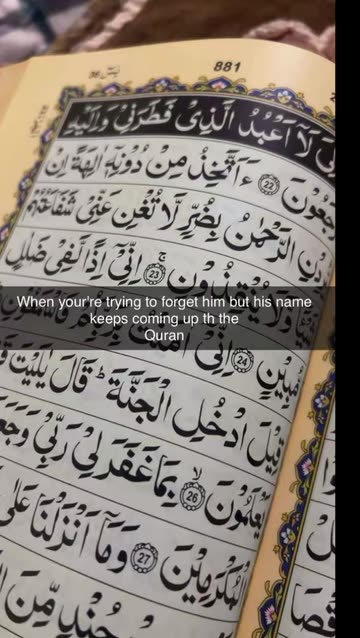 881
لَآ اَعْبُدُ الَّذِىْ فَطَرَنِىْ وَاِلَيْهِ
جَعُوْنَ 22 ءَاَتَّخِذُ مِنْ دُوْنِهٖٓ اٰلِهَةً اِنْ
دْنِ الرَّحْمٰنُ بِضُرٍّ لَّا تُغْنِ عَنِّىْ شَفَاعَتُهُمْ
وَّلَا يُنْقِذُوْنِ 23 اِنِّىْٓ اِذًا لَّفِىْ ضَلٰلٍ
When your're trying to forget him but his name
keeps coming up th the
Quran
مُّبِيْنٍ 24 اِنِّىْٓ
قِيْلَ ادْخُلِ الْجَنَّةَ ؕ قَالَ يٰلَيْتَ
يَعْلَمُوْنَ 26 بِمَا غَفَرَ لِىْ رَبِّىْ وَجَعَ
الْمُكْرَمِيْنَ 27 وَمَآ اَنْزَلْنَا عَلٰى
جُنْدٍ مِّنَ